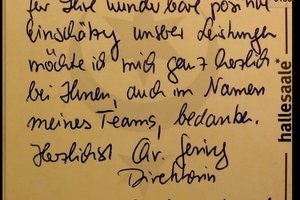 für Ihre wunderbare positive
Einschätzg unserer Leistungen
möchte ich mich ganz herzlich
bei Ihnen, auch im Namen
meines Teams, bedanken.
Herzlichst
Direktorin
hallesaale*